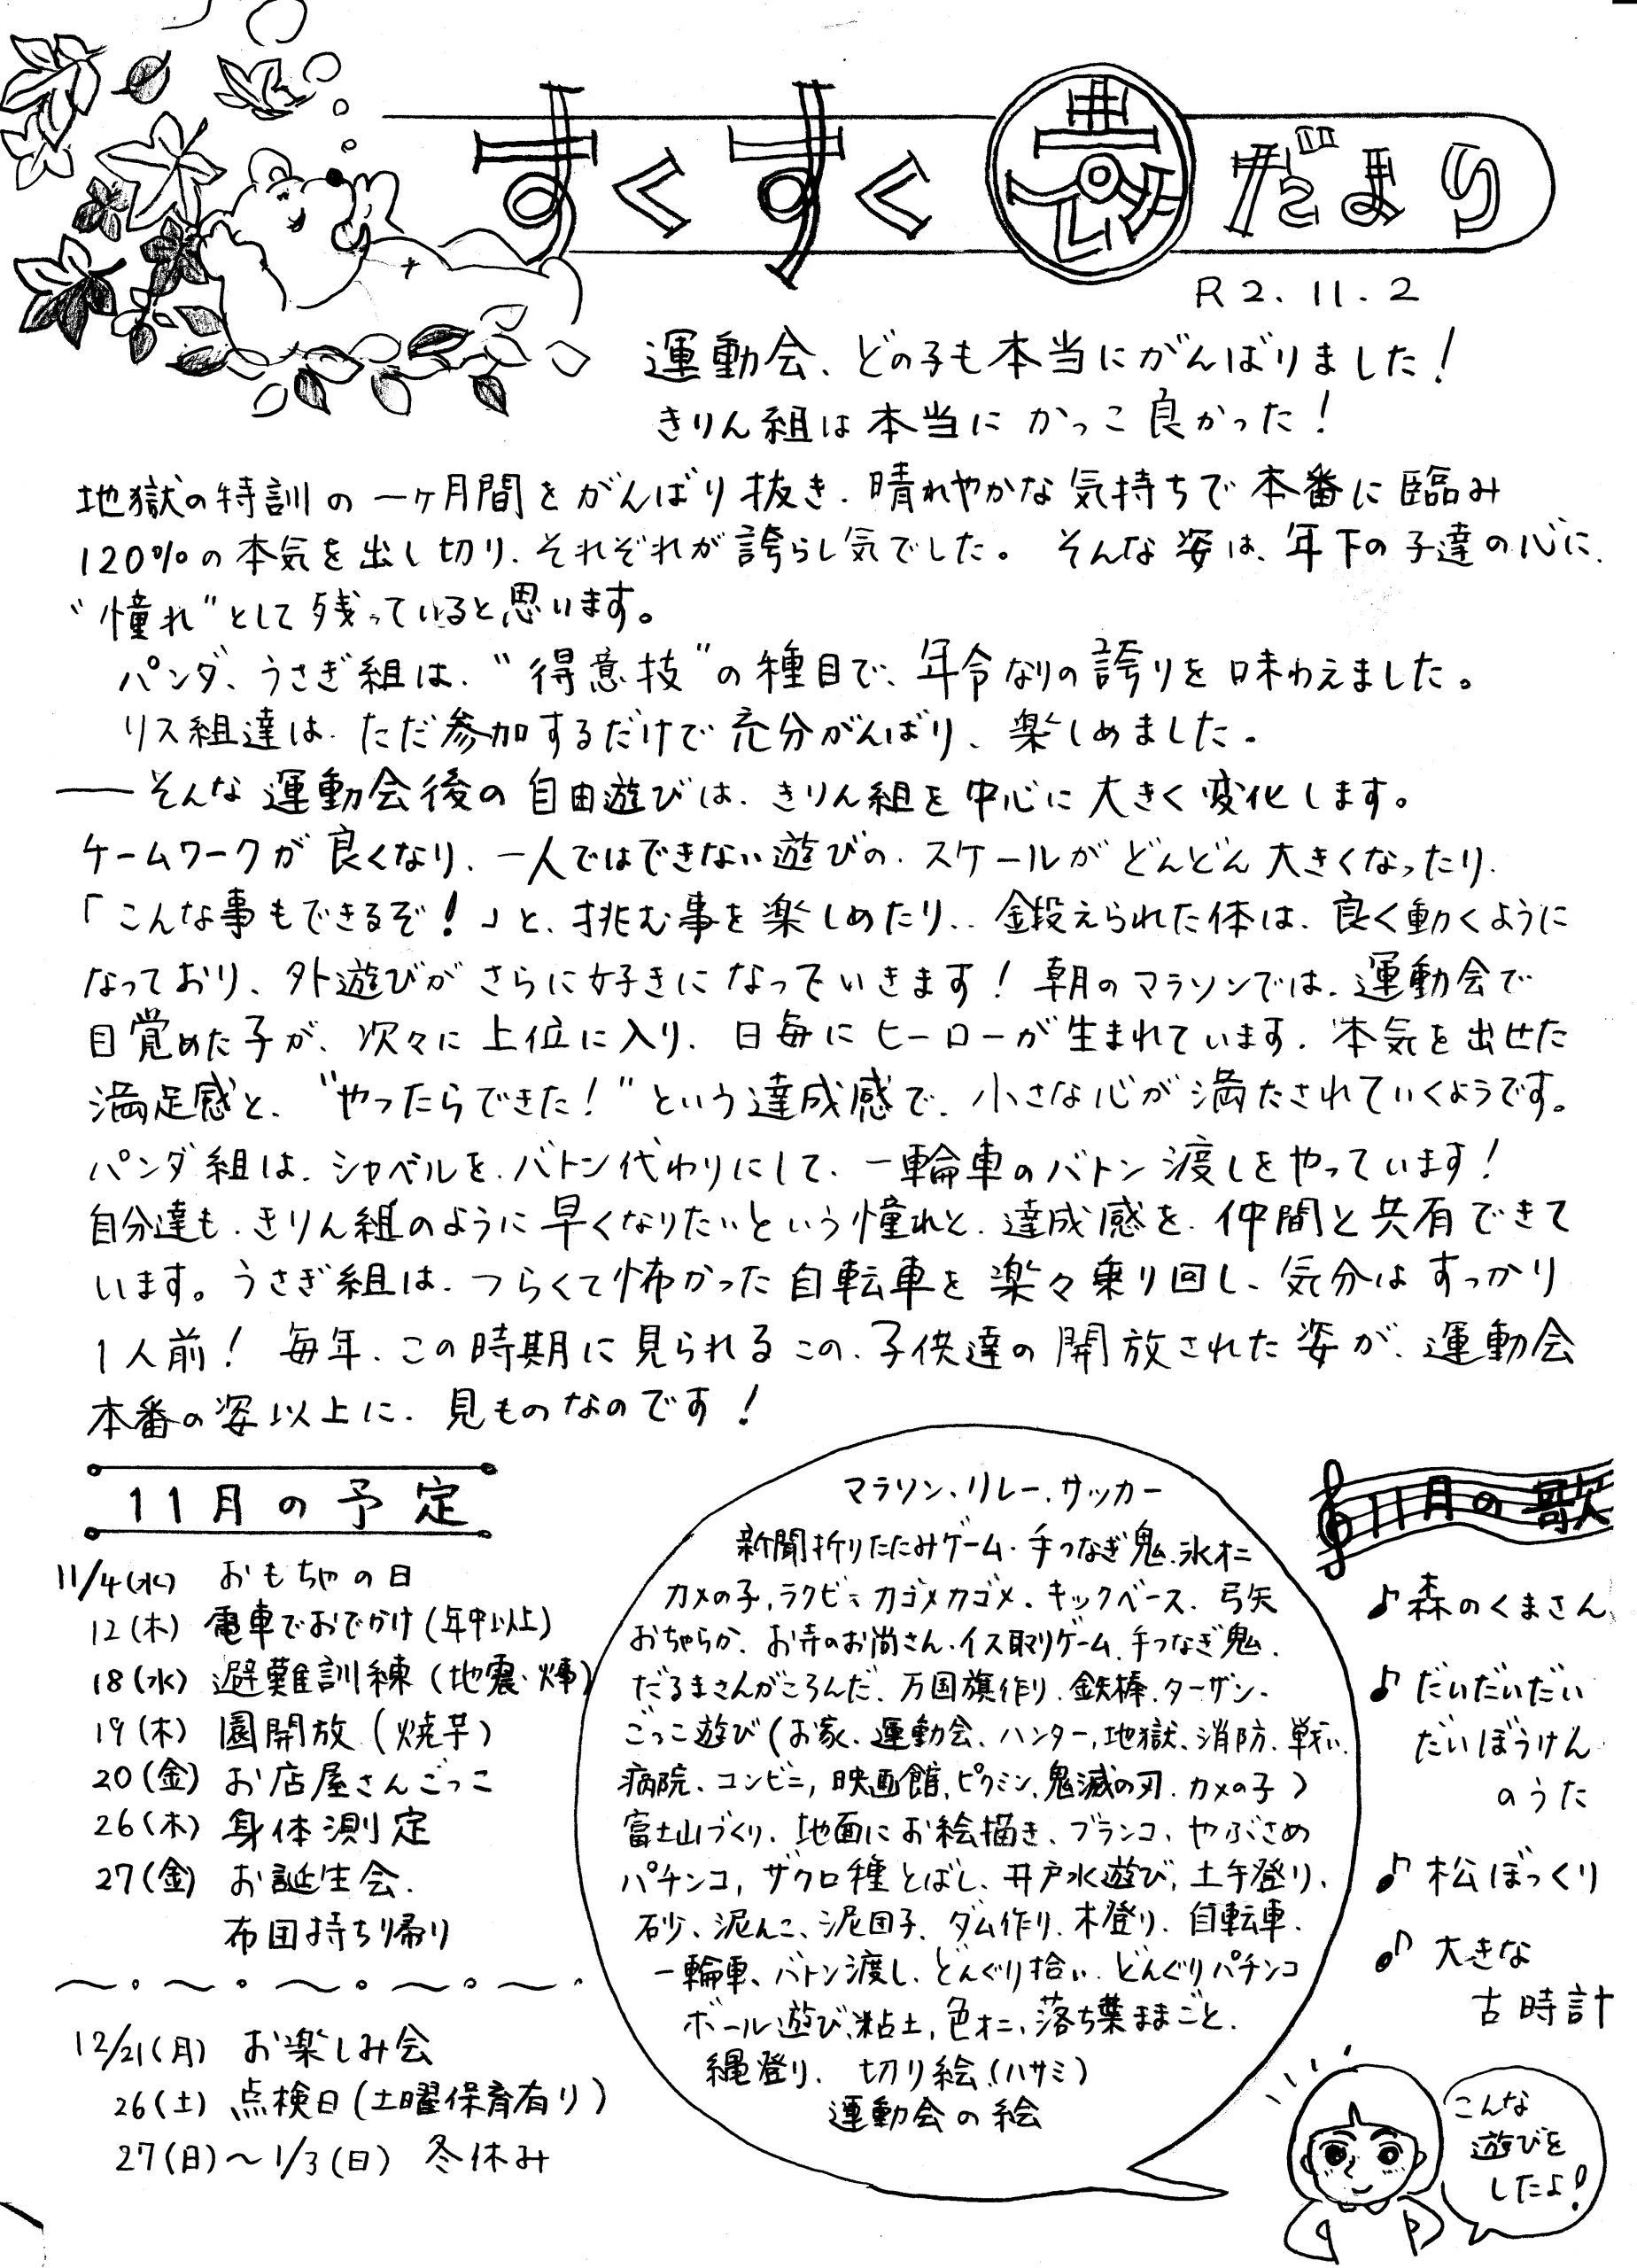 すくすく
だより
R2.11.2
運動会、どの子も本当にがんばりました！
きりん組は本当にかっこ良かった！
地獄の特訓の一ヶ月間をがんばり抜き、晴れやかな気持ちで本番に臨み
120%の本気を出し切り、それぞれが誇らし気でした。そんな姿は、年下の子達の心に、
"憧れ"として残っていると思います。
パンダ、うさぎ組は、"得意技"の種目で、年令なりの誇りを味わえました。
リス組達は、ただ参加するだけで充分がんばり、楽しめました。
――そんな運動会後の自由遊びは、きりん組を中心に大きく変化します。
チームワークが良くなり、一人ではできない遊びの、スケールがどんどん大きくなったり、
「こんな事もできるぞ！」と、挑む事を楽しめたり‥鍛えられた体は、良く動くように
なっており、外遊びがさらに好きになっていきます！朝のマラソンでは、運動会で
目覚めた子が、次々に上位に入り、日毎にヒーローが生まれています。本気を出せた
満足感と、"やったらできた！"という達成感で、小さな心が満たされていくようです。
パンダ組は、シャベルを、バトン代わりにして、一輪車のバトン渡しをやっています！
自分達も、きりん組のように早くなりたいという憧れと、達成感を、仲間と共有できて
います。うさぎ組は、つらくて怖かった自転車を楽々乗り回し、気分はすっかり
1人前！毎年、この時期に見られるこの、子供達の開放された姿が、運動会
本番の姿以上に、見ものなのです！
11月の予定
11/4(水) おもちゃの日
12(木) 電車でおでかけ(年中以上)
18(水) 避難訓練(地震・煙)
19(木) 園開放(焼芋)
20(金) お店屋さんごっこ
26(木) 身体測定
27(金) お誕生会、
布団持ち帰り
12/21(月) お楽しみ会
26(土) 点検日(土曜保育有り)
27(日)～1/3(日) 冬休み
マラソン、リレー、サッカー
新聞折りたたみゲーム、手つなぎ鬼、氷オニ
カメの子、ラグビー、カゴメカゴメ、キックベース、弓矢
おちゃらか、お寺のお尚さん、イス取りゲーム、手つなぎ鬼、
だるまさんがころんだ、万国旗作り、鉄棒、ターザン、
ごっこ遊び(お家、運動会、ハンター、地獄、消防、戦い、
病院、コンビニ、映画館、ピクミン、鬼滅の刃、カメの子)
富士山づくり、地面にお絵描き、ブランコ、やぶさめ
パチンコ、ザクロ種とばし、井戸水遊び、土手登り、
砂、泥んこ、泥団子、ダム作り、木登り、自転車、
一輪車、バトン渡し、どんぐり拾い、どんぐりパチンコ
ボール遊び、粘土、色オニ、落ち葉ままごと、
縄登り、切り絵(ハサミ)
運動会の絵
11月の歌
♪森のくまさん
♪だいだいだい
だいぼうけん
のうた
♪松ぼっくり
♪大きな
古時計
こんな
遊びを
したよ！